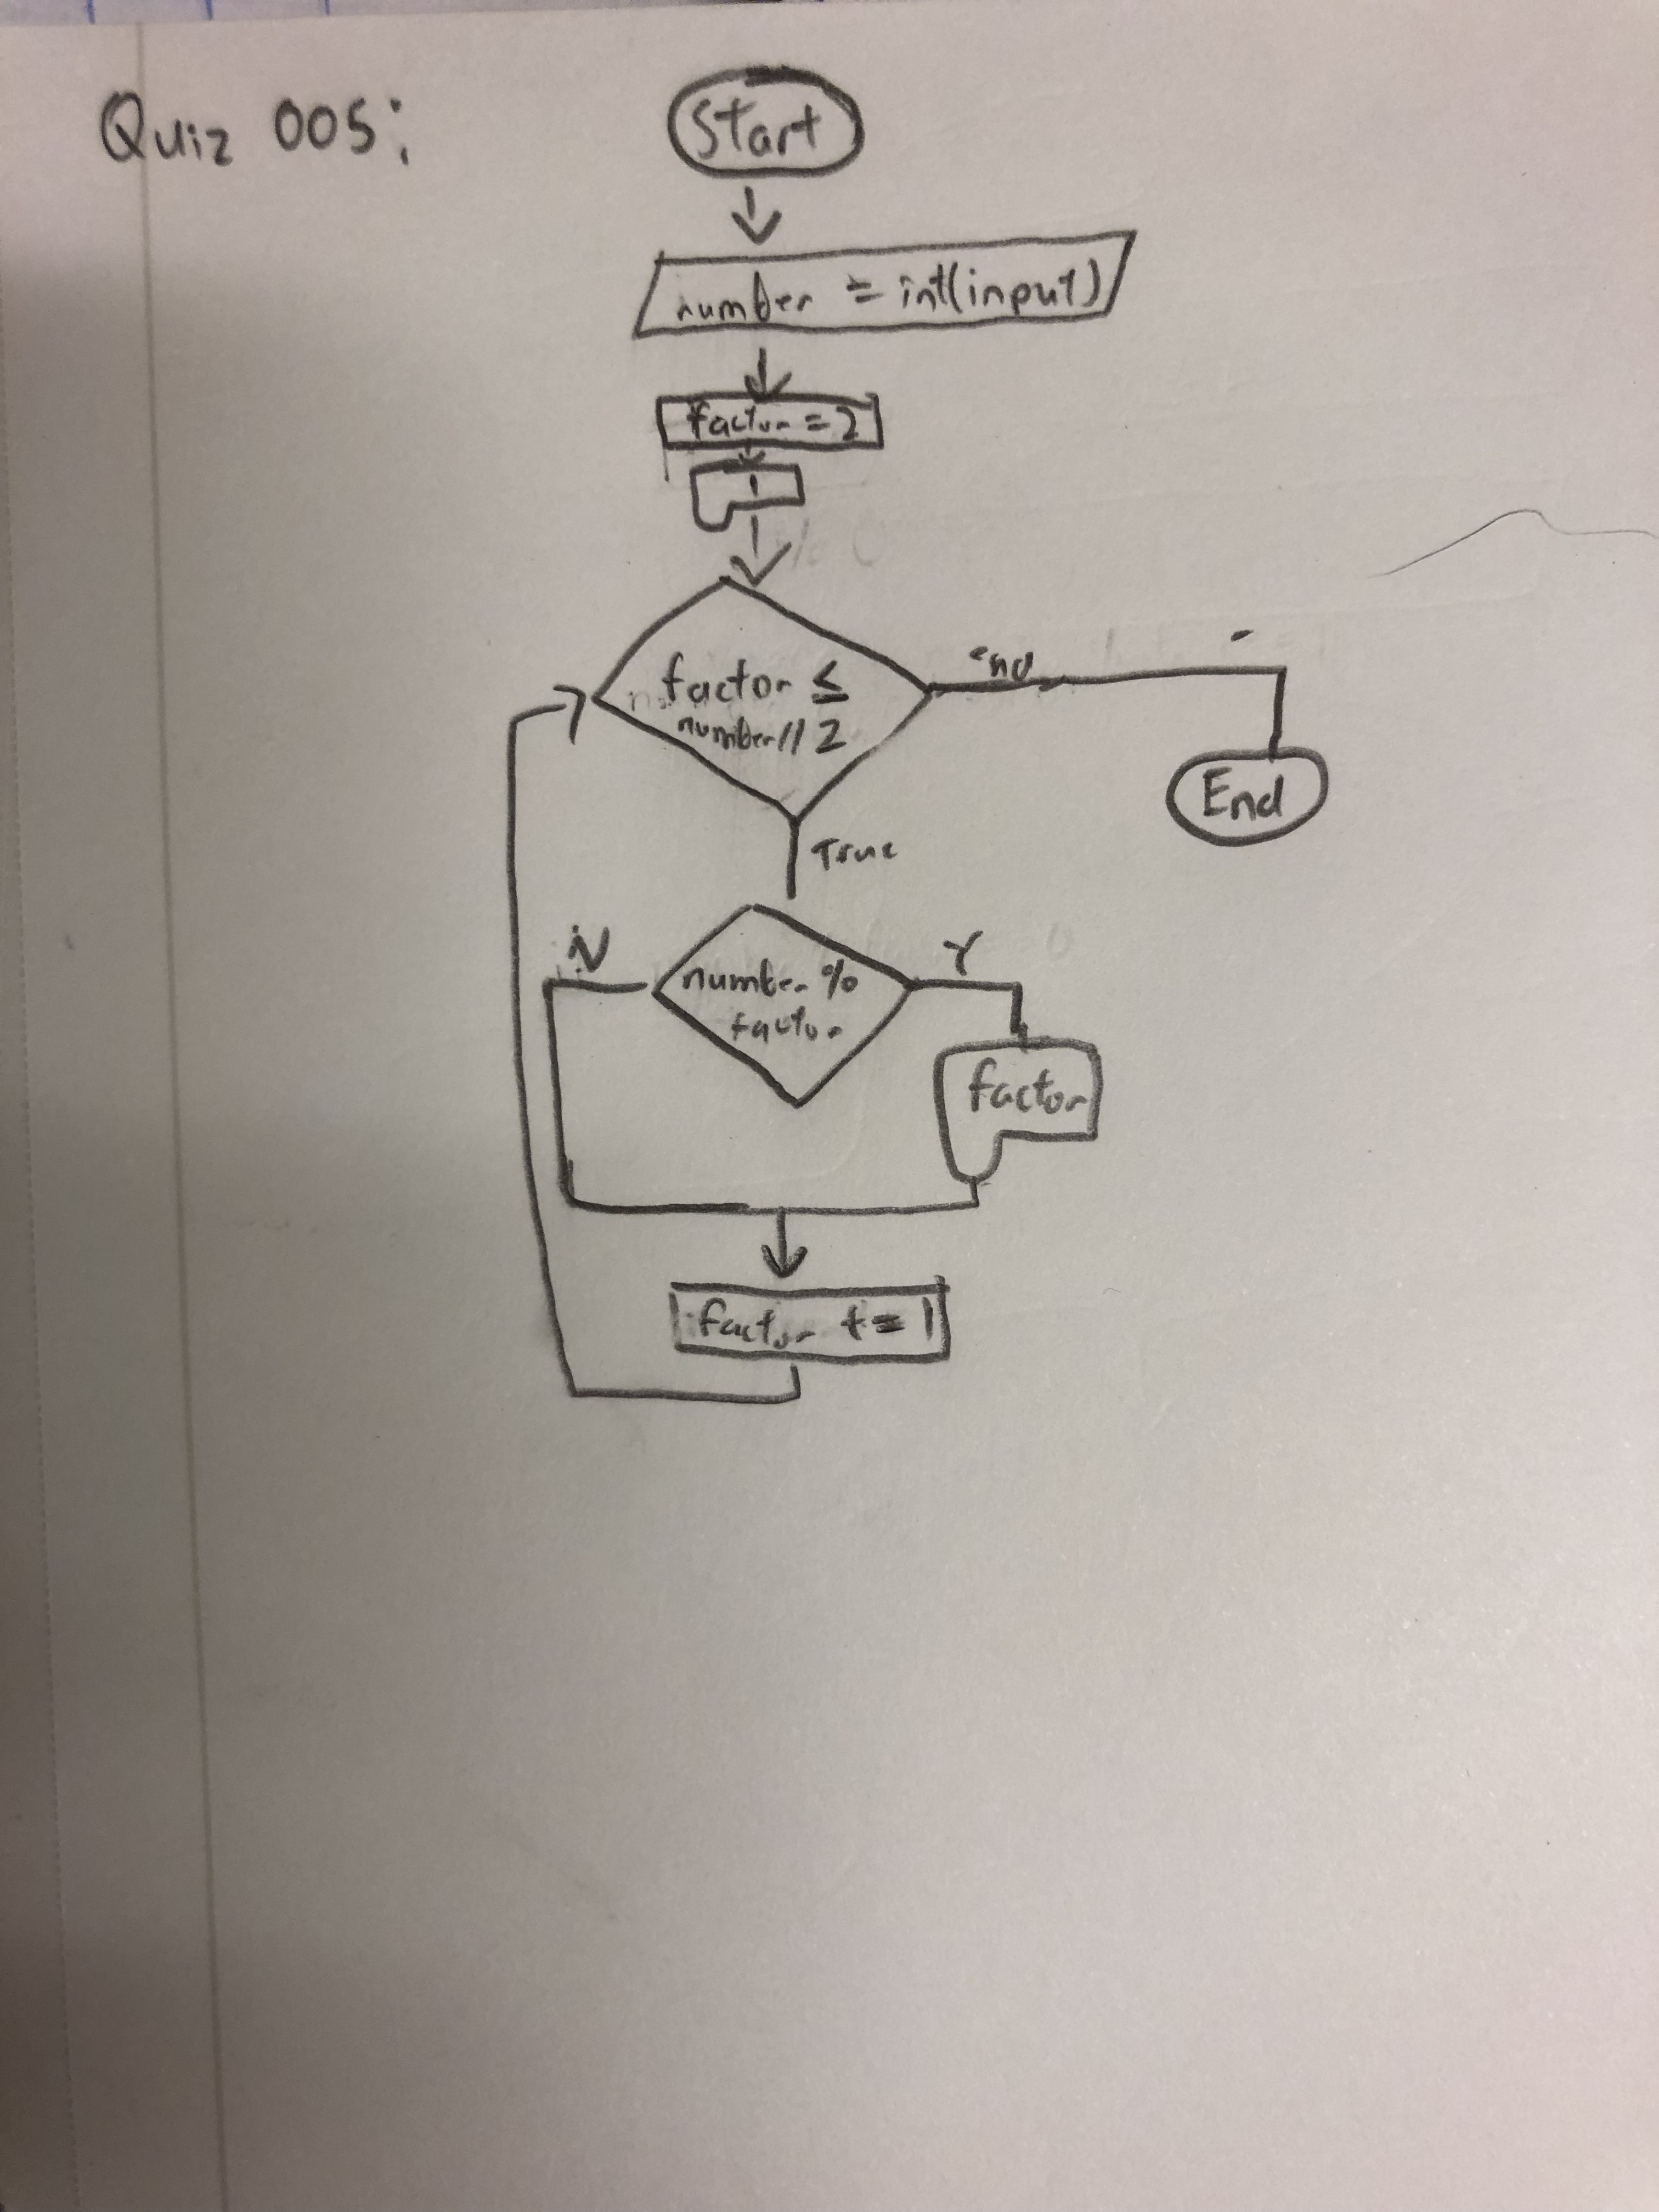 Quiz 005:
Start
number = int(input)
factor = 2
1
factor ≤
number//2
end
End
True
N
Y
number %
factor
factor
factor += 1